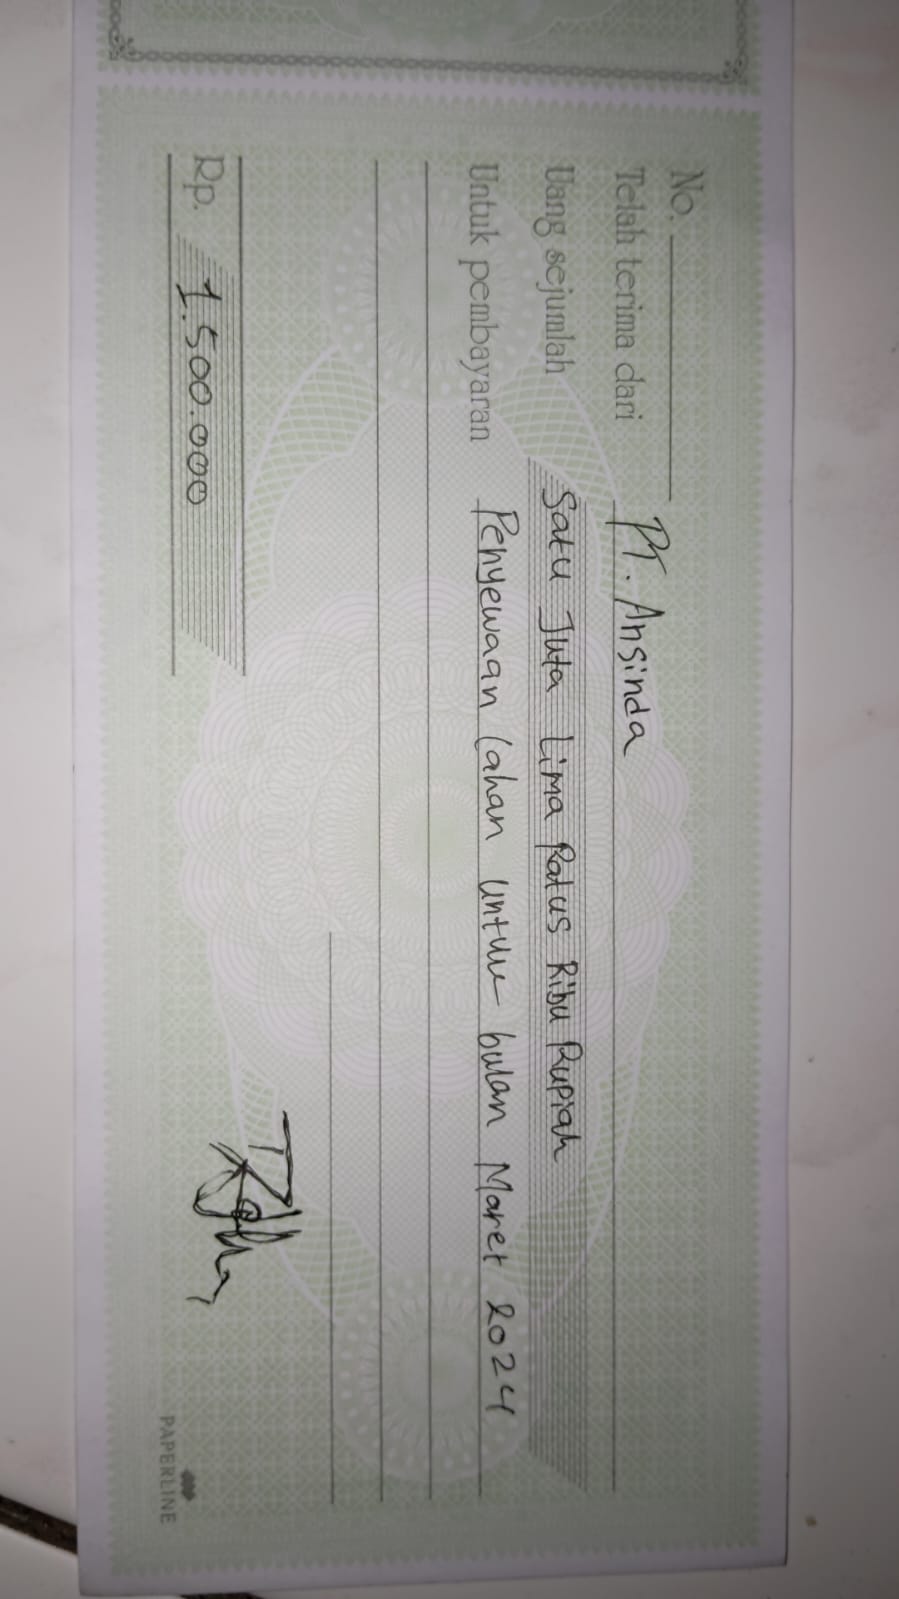 No.
Telah terima dari PT. Ansinda
Uang sejumlah Satu Juta Lima Ratus Ribu Rupiah
Untuk pembayaran Penyewaan lahan untuk bulan Maret 2024
Rp. 1.500.000
PAPERLINE